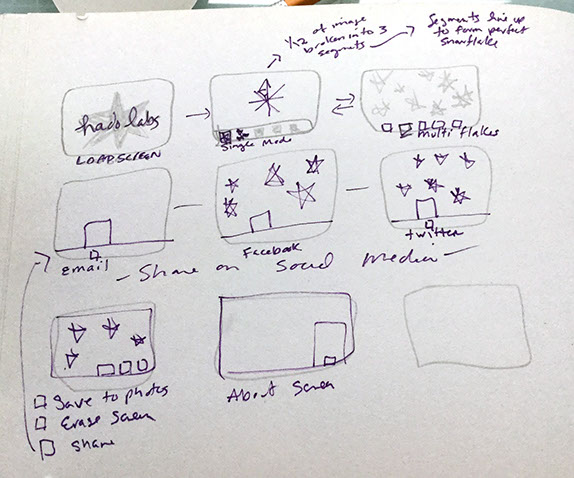 1/12 of image
broken into 3
segments
Segments line up
to form perfect
snowflake
hado labs
LOADSCREEN
Single Mode
multi flakes
email
Facebook
twitter
- Share on Social Media -
Save to photos
Erase Screen
Share
About Screen